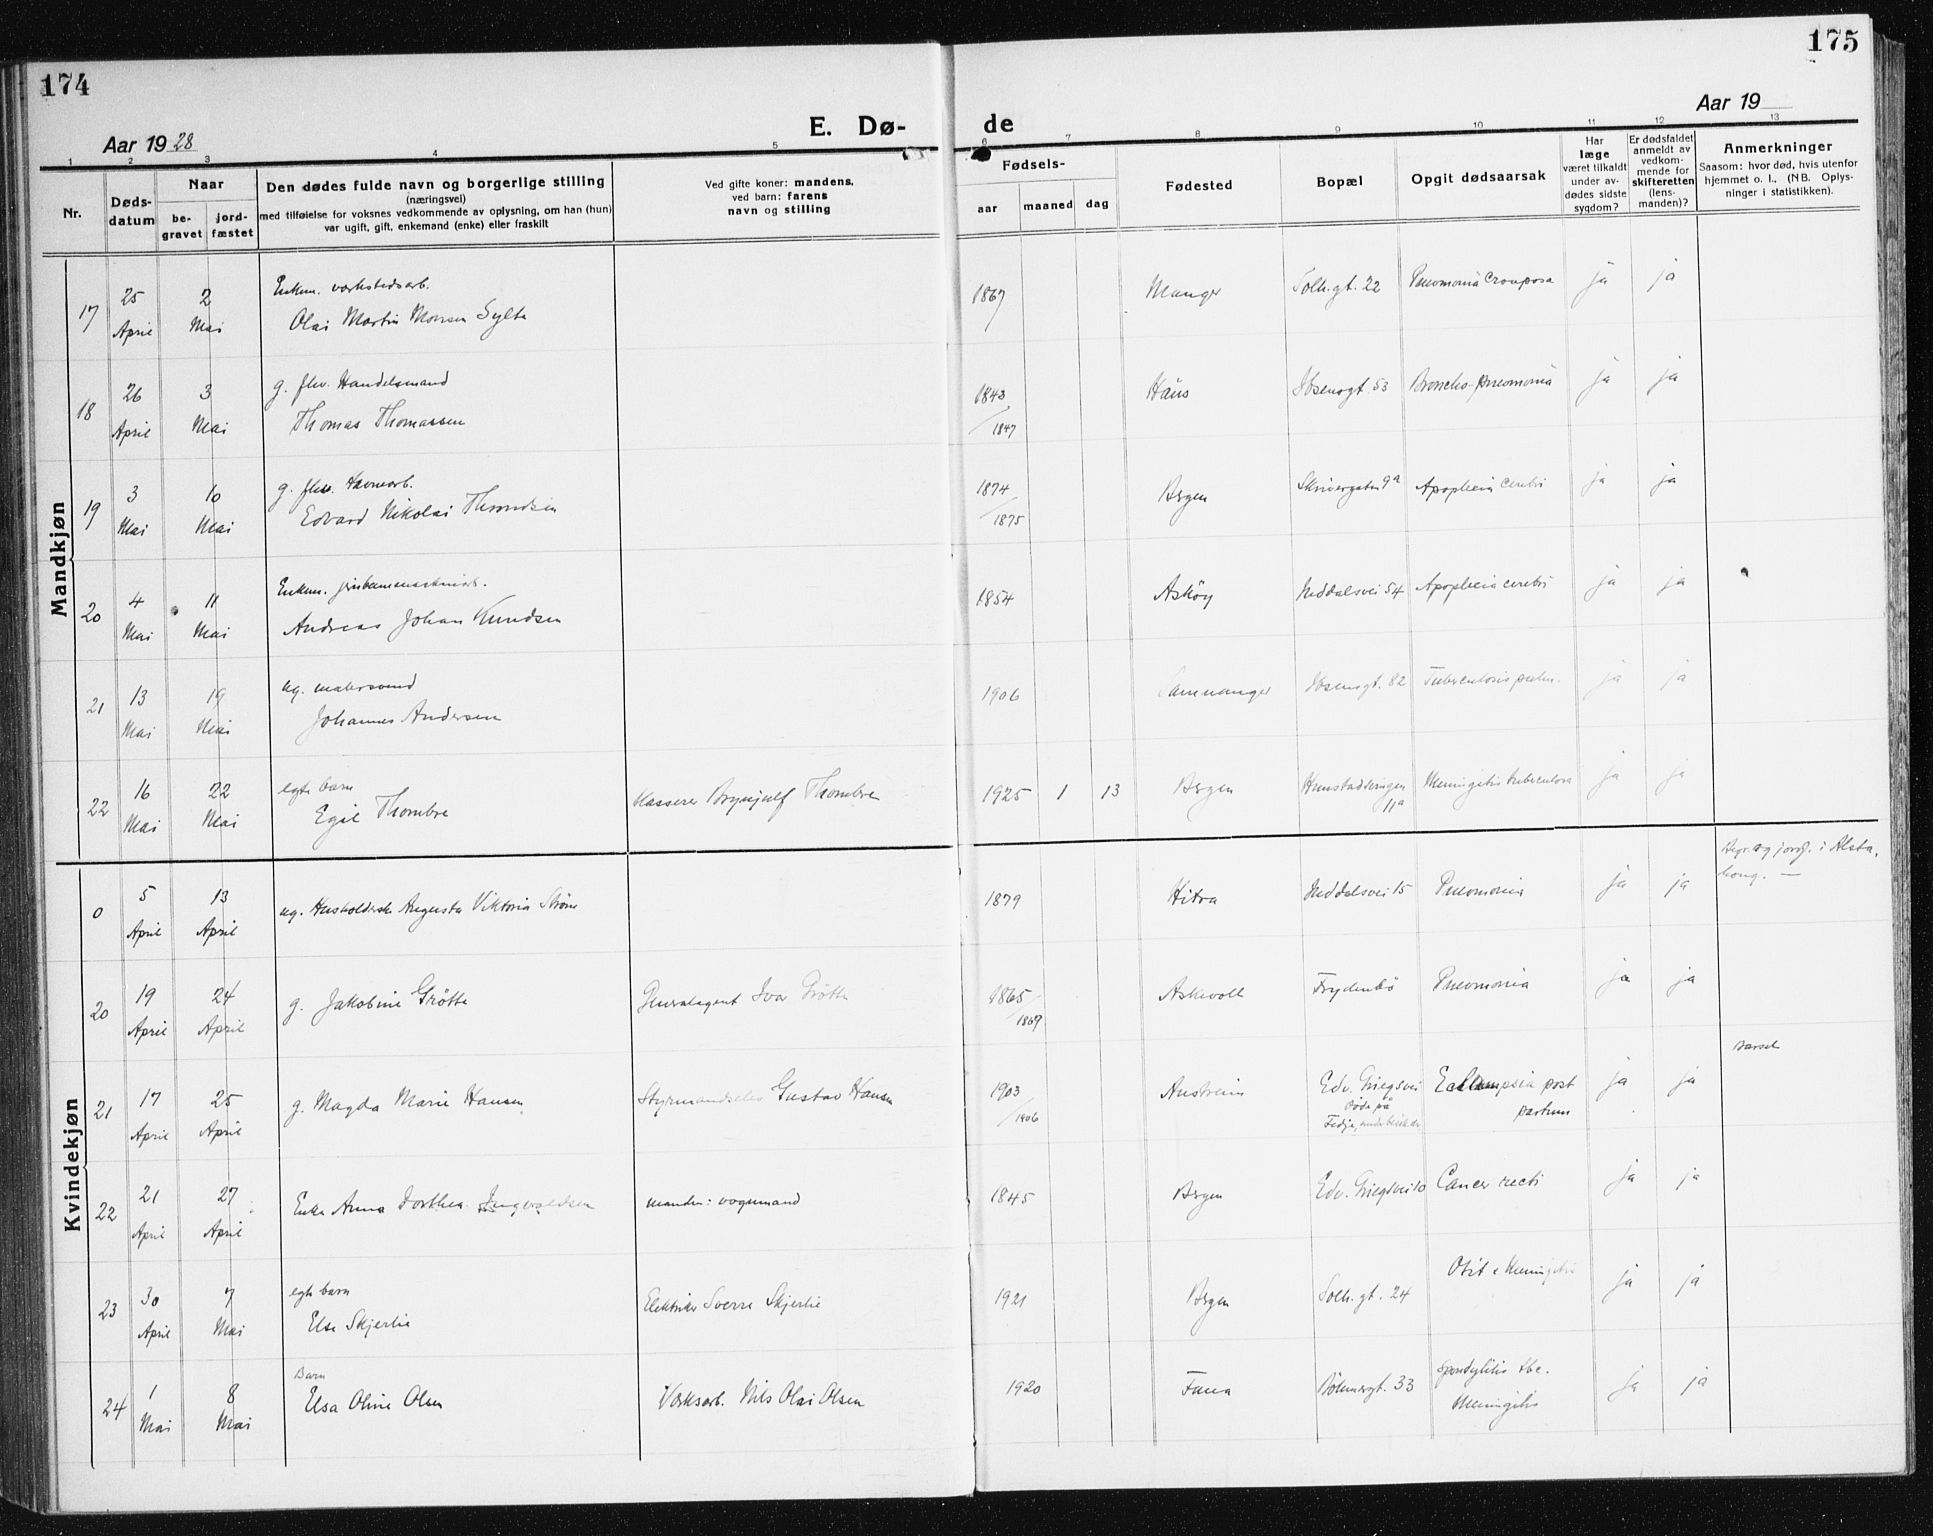 174
175
Aar 1928
E. Dø-
de
Aar 19
1 2 3 4 5 6 7 8 9 10 11 12 13
Nr.
Døds-
datum
Naar
be-
gravet
jord-
fæstet
Den dødes fulde navn og borgerlige stilling
(næringsvei)
med tilføielse for voksnes vedkommende av oplysning, om han (hun)
var ugift, gift, enkemand (enke) eller fraskilt
Ved gifte koner: mandens,
ved barn: farens
navn og stilling
Fødsels-
aar maaned dag
Fødested
Bopæl
Opgit dødsaarsak
Har
læge
været tilkaldt
under av-
dødes sidste
sygdom?
Er dødsfaldet
anmeldt av
vedkom-
mende for
skifteretten
(lens-
manden)?
Anmerkninger
Saasom: hvor død, hvis utenfor
hjemmet o. l., (NB. Oplys-
ninger i statistikken).
Mandkjøn
17 25 April 2 Mai Enkem. verkstedsarb.
Olai Martin Monsen Sylta 1867 Manger Solh.gt. 22 Pneomonia Crouposa ja ja
18 26 April 3 Mai g. fhv. Handelsmand
Thomas Thomassen 1843/1847 Haus Ibsensgt. 53 Broncho-pneomonia ja ja
19 3 Mai 10 Mai g. fhv. Havnearb.
Edvard Nikolai Throndsen 1874/1875 Bergen Skrivergaten 9a Apoplexia cerebri ja ja
20 4 Mai 11 Mai Enkem.
Andreas Johan Knudsen 1854 Askøy Inddalsvei 54 Apoplexia cerebri ja ja
21 13 Mai 19 Mai ug. malersvend
Johannes Andersen 1906 Samnanger Ibsensgt. 82 Tuberculosis pulm. ja ja
22 16 Mai 22 Mai egte barn
Egil Thombre Kasserer Brynjulf Thombre 1925 1 13 Bergen 11a Meningitis tuberculosa ja ja
Kvindekjøn
0 5 April 13 April ug. Husholdersk. Augusta Viktoria Strøm 1879 Hitra Inddalsvei 15 Pneomonia ja ja Begr. og jordf. i Alsta-
houg. —
20 19 April 24 April g. Jakobine Grötte Generalagent Ivar Grötte 1865/1869 Askvoll Frydenbö Pneomonia ja ja
21 17 April 25 April g. Magda Marie Hansen Styrmandselev Gustav Hansen 1903/1906 Austreim Edv. Griegsvei
Döde på
Fedje, Eclampsia post
partum ja ja Barsel
22 21 April 27 April Enke Anna Dorthea Ingvaldsen manden: vognmand 1845 Bergen Edv. Griegsvei 10 Cancer recti ja ja
23 30 April 7 Mai egte barn
Else Skjerlie Elektriker Sverre Skjerlie 1921 Bergen Solh.gt. 24 Otit & Meningitis ja ja
24 1 Mai 8 Mai Barn
Elsa Oline Olsen Verksarb. Nils Olai Olsen 1920 Fana Böhmergt. 33 Spondylitis tbc.
Meningitis ja ja